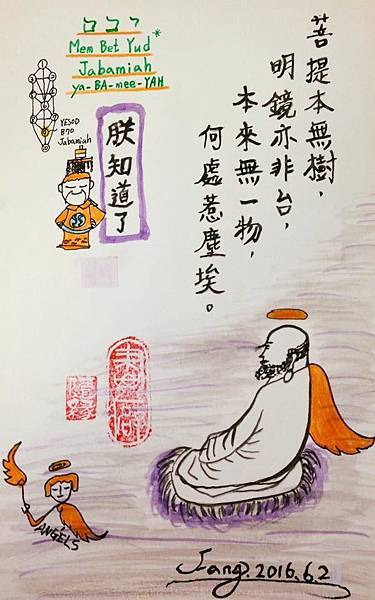 ם ב י
Mem Bet Yud*
Jabamiah
ya-BA-mee-YAH
YESOD
B70
Jabamiah
朕知道了
菩提本無樹，
明鏡亦非台，
本來無一物，
何處惹塵埃。
ANGELS
Fang. 2016.6.2